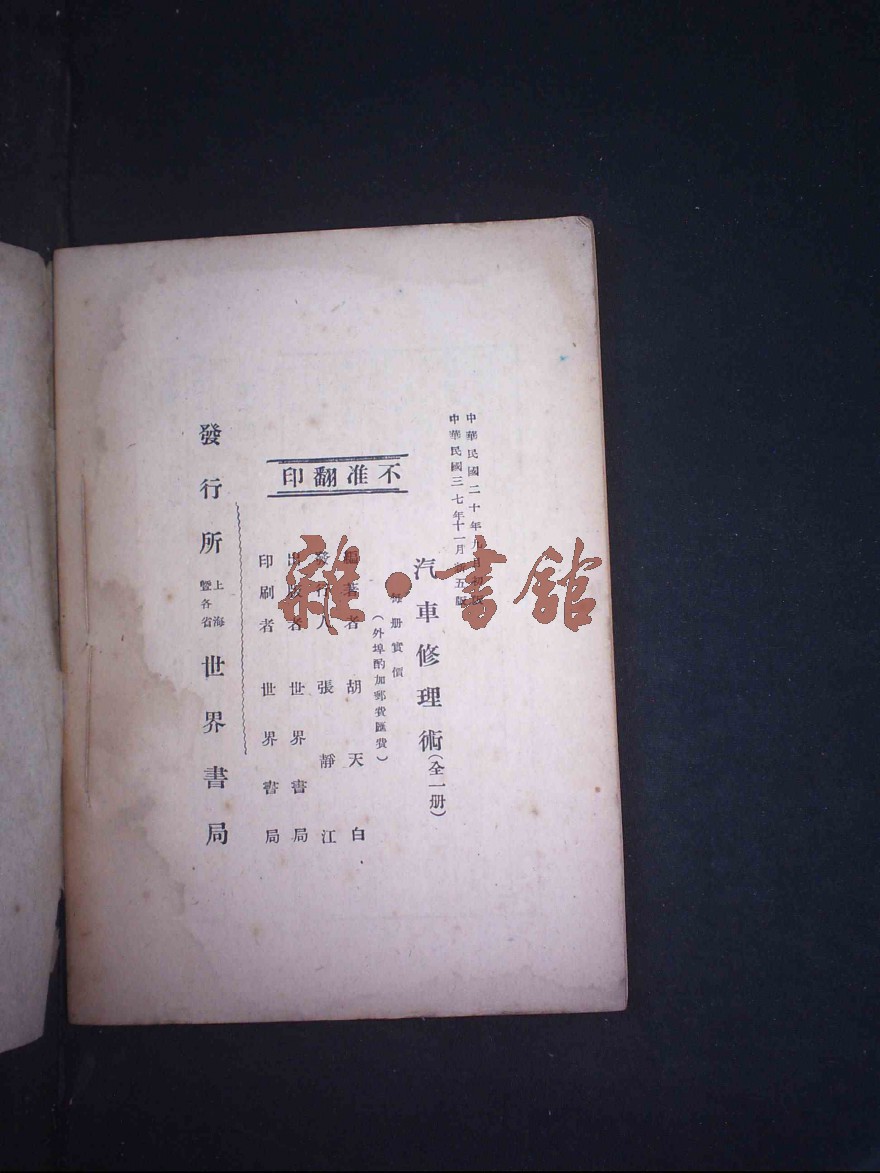 中華民國二十年九月初版
中華民國三七年十一月新五版
汽車修理術(全一册)
每册實價
(外埠酌加郵費匯費)
不准翻印
編著者 胡天白
發行人 張靜江
出版者 世界書局
印刷者 世界書局
發行所 上海暨各省 世界書局
雜·書館